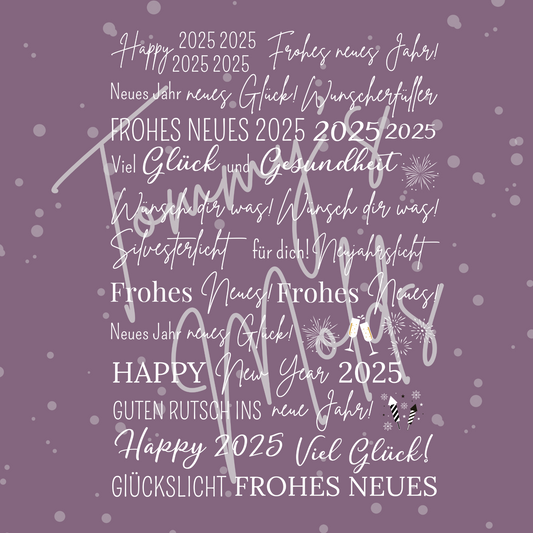 Happy 2025 2025 Frohes neues Jahr!
2025 2025
Neues Jahr neues Glück! Wunscherfüller
FROHES NEUES 2025 2025 2025
Viel Glück und Gesundheit
Wünsch dir was! Wünsch dir was!
Silvesterlicht für dich! Neujahrslicht
Frohes Neues! Frohes Neues!
Neues Jahr neues Glück!
HAPPY New Year 2025
GUTEN RUTSCH INS neue Jahr!
Happy 2025 Viel Glück!
GlÜCKSLICHT FROHES NEUES
Tommy's
Motts